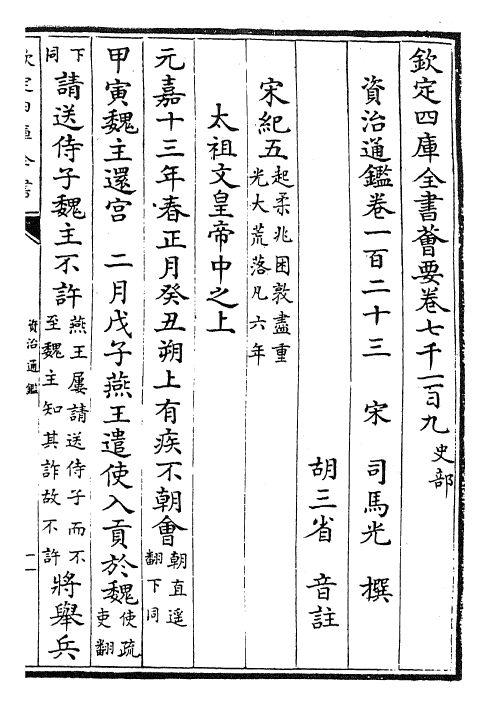 欽定四庫全書薈要卷七千一百九 史部
資治通鑑卷一百二十三 宋 司馬光 撰
胡三省 音註
宋紀五 起柔兆困敦盡重光大荒落凡六年
太祖文皇帝中之上
元嘉十三年春正月癸丑朔上有疾不朝會 朝直遥翻下同
甲寅魏主還宫 二月戊子燕王遣使入貢於魏 使疏吏翻
下同 請送侍子魏主不許 燕王屢請送侍子而不至魏主知其詐故不許 將舉兵
欽定四庫全書
資治通鑑
一